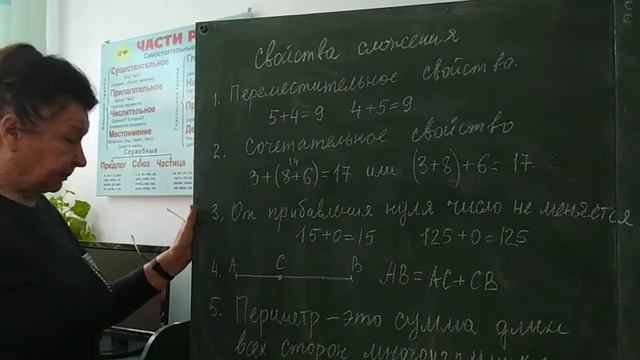 ЧАСТИ Р
Самостоятельные
Существительное
Прилагательное
Числительное
Местоимение
Служебные
Предлог Союз Частица
Свойства сложения
1. Переместительное свойство.
5+4=9 4+5=9
2. Сочетательное свойство
14
3+(8+6)=17 или (3+8)+6=17
3. От прибавления нуля число не меняется
15+0=15 125+0=125
4. A C B AB=AC+CB
5. Периметр – это сумма длин
всех сторон многоугольник